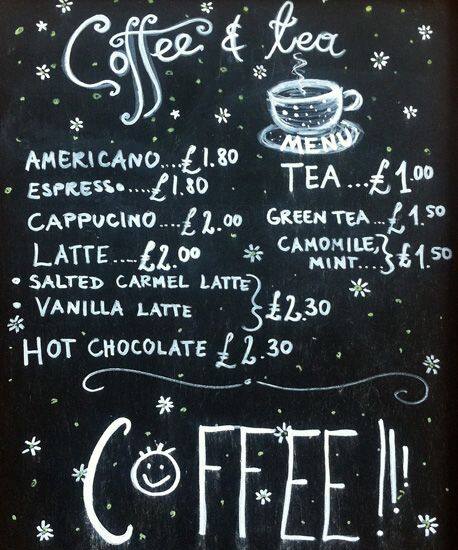 Coffee & tea
MENU
AMERICANO....£1.80
ESPRESSO.....£1.80
CAPPUCINO....£2.00
LATTE.....£2.00
• SALTED CARMEL LATTE
• VANILLA LATTE } £2.30
HOT CHOCOLATE £2.30
TEA...£1.00
GREEN TEA...£1.50
CAMOMILE,
MINT....} £1.50
COFFEE!!!